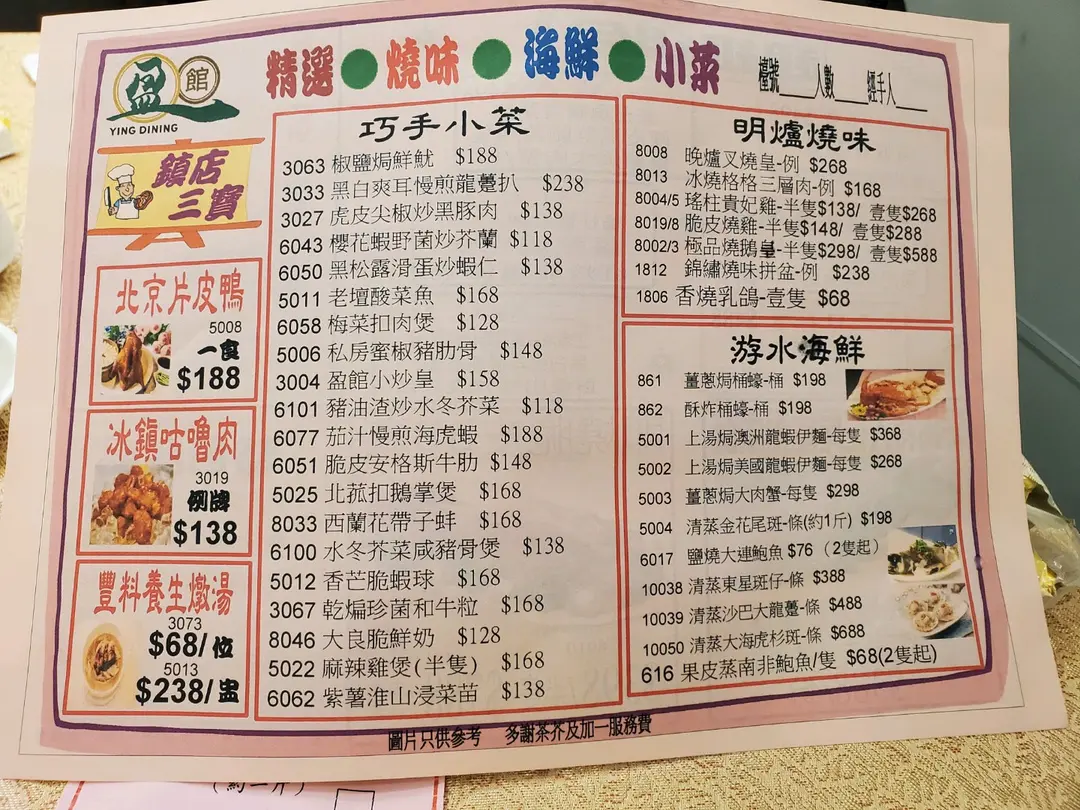 盈
館
YING DINING
精選●燒味●海鮮●小菜
檯號____人數____經手人____
鎮店
三寶
北京片皮鴨
5008
一食
$188
冰鎮咕嚕肉
3019
例牌
$138
豐料養生燉湯
3073
$68/位
5013
$238/盅
巧手小菜
3063 椒鹽焗鮮魷 $188
3033 黑白爽耳慢煎龍躉扒 $238
3027 虎皮尖椒炒黑豚肉 $138
6043 櫻花蝦野菌炒芥蘭 $118
6050 黑松露滑蛋炒蝦仁 $138
5011 老壇酸菜魚 $168
6058 梅菜扣肉煲 $128
5006 私房蜜椒豬肋骨 $148
3004 盈館小炒皇 $158
6101 豬油渣炒水冬芥菜 $118
6077 茄汁慢煎海虎蝦 $188
6051 脆皮安格斯牛肋 $148
5025 北菰扣鵝掌煲 $168
8033 西蘭花帶子蚌 $168
6100 水冬芥菜咸豬骨煲 $138
5012 香芒脆蝦球 $168
3067 乾煸珍菌和牛粒 $168
8046 大良脆鮮奶 $128
5022 麻辣雞煲(半隻) $168
6062 紫薯淮山浸菜苗 $138
明爐燒味
8008 晚爐叉燒皇-例 $268
8013 冰燒格格三層肉-例 $168
8004/5 瑤柱貴妃雞-半隻$138/ 壹隻$268
8019/8 脆皮燒雞-半隻$148/ 壹隻$288
8002/3 極品燒鵝皇-半隻$298/ 壹隻$588
1812 錦繡燒味拼盆-例 $238
1806 香燒乳鴿-壹隻 $68
游水海鮮
861 薑蔥焗桶蠔-桶 $198
862 酥炸桶蠔-桶 $198
5001 上湯焗澳洲龍蝦伊麵-每隻 $368
5002 上湯焗美國龍蝦伊麵-每隻 $268
5003 薑蔥焗大肉蟹-每隻 $298
5004 清蒸金花尾斑-條(約1斤) $198
6017 鹽燒大連鮑魚 $76 （2隻起）
10038 清蒸東星斑仔-條 $388
10039 清蒸沙巴大龍躉-條 $488
10050 清蒸大海虎杉斑-條 $688
616 果皮蒸南非鮑魚/隻 $68(2隻起)
圖片只供參考 多謝茶芥及加一服務費